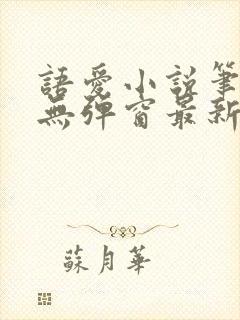 語愛小說筆
無彈窗最新
蘇月華